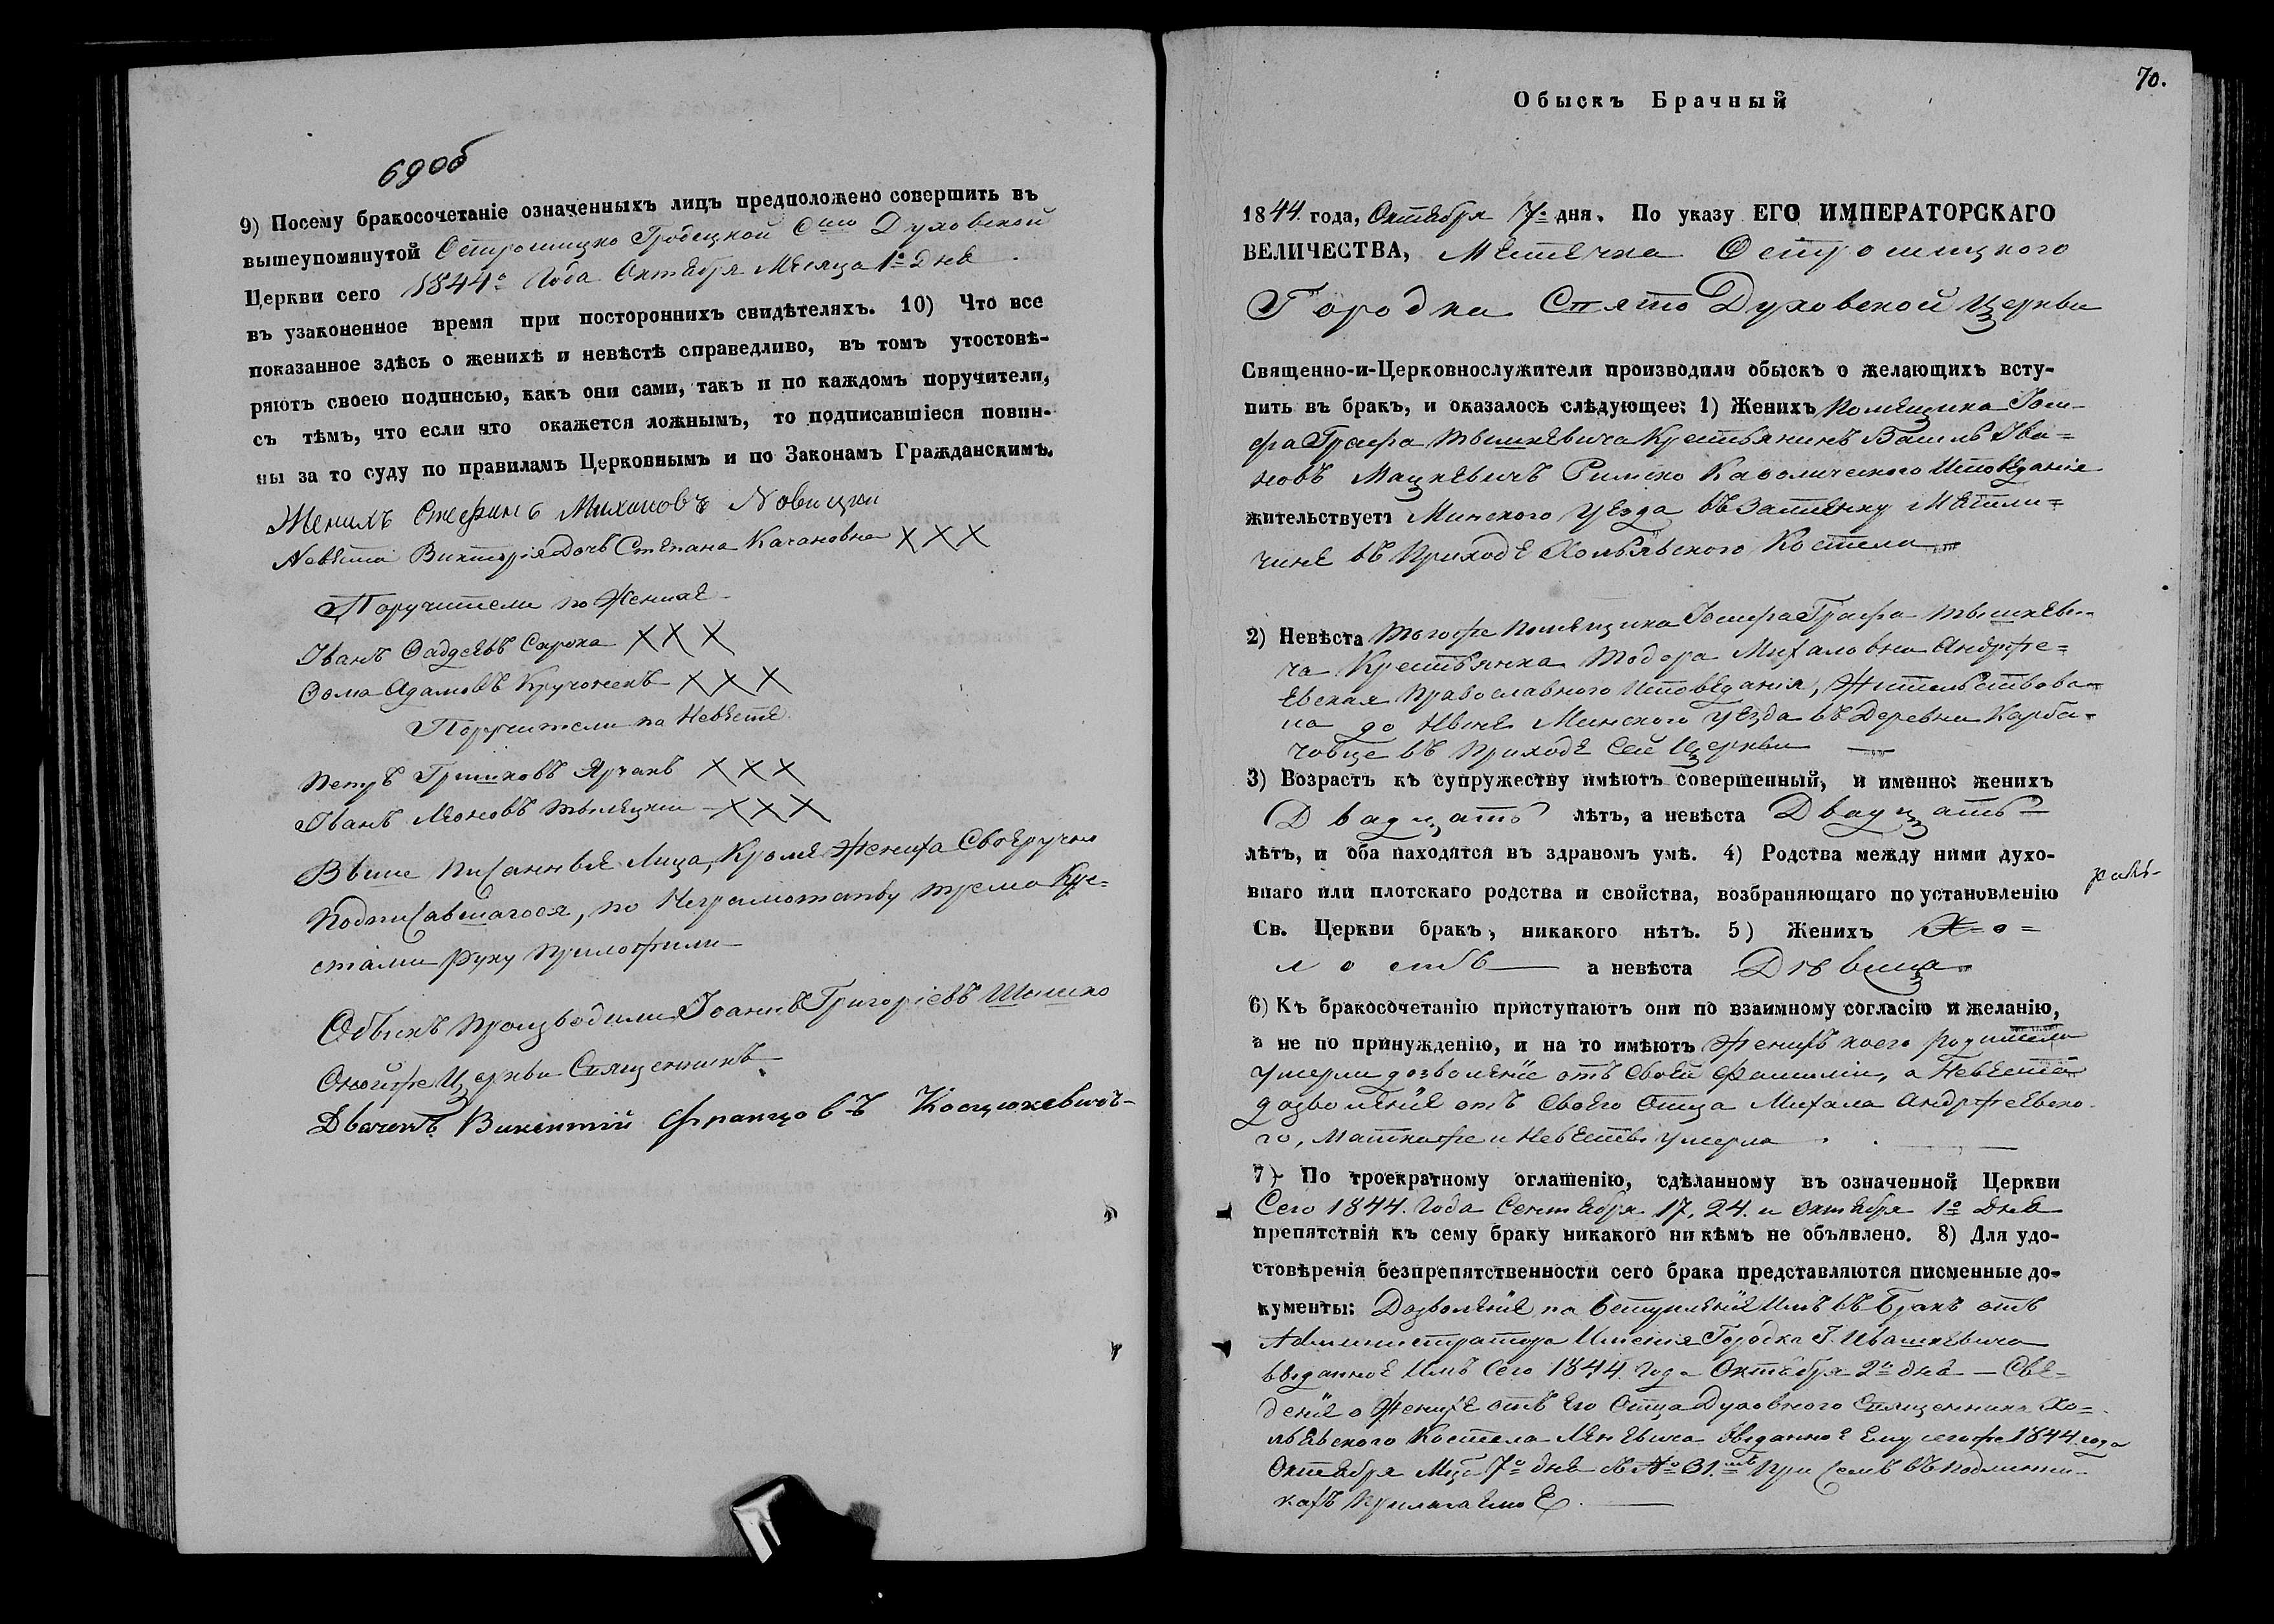 69об
9) Посему бракосочетаніе означенныхъ лицъ предположено совершить въ
вышеупомянутой Острошицко Гродецкой Сто Духовской
Церкви сего 1844го Года Октября Месяца 1го дня
въ узаконенное время при постороннихъ свидѣтеляхъ. 10) Что все
показанное здѣсь о женихѣ и невѣстѣ справедливо, въ томъ утостовѣ-
ряютъ своею подписью, какъ они сами, такъ и по каждомъ поручители,
съ тѣмъ, что если что окажется ложнымъ, то подписавшіеся повин-
ны за то суду по правиламъ Церковнымъ и по Законамъ Гражданскимъ.
Женихъ Стефанъ Михаловъ Новицки
Невѣста Викторія Дочь Степана Качановна ХХХ
Поручители по Женихе
Іванъ Фадеевъ Сарока ХХХ
Фома Адамовъ Кручонекъ ХХХ
Поручители по Невѣстѣ
Петръ Гришковъ Ярчакъ ХХХ
Іванъ Леоновъ ХХХ
Выше Писанные Лица, Кроме Жениха Своеручно
Подписавшагося, по Неграмотству трема Кре=
стами руку приложили
Обыскъ Производили Іоаннъ Григоріевъ Шошко
Онойже Церкви Священникъ
Дьячекъ Викентій Францовъ Косцюкевичъ
70.
Обыскъ Брачный
1844 года, Октября 7го дня. По указу ЕГО ИМПЕРАТОРСКАГО
ВЕЛИЧЕСТВА, Местечка Острошицкого
Городка Свято Духовской Церкви
Священно-и-Церковнослужители производили обыскъ о желающихъ всту-
пить въ бракъ, и оказалось слѣдующее: 1) Женихъ Помещика Іози-
фа Графа Тышкевича Крестьянинъ Василь Ива=
новъ Мацкевичъ Римско Каѳолического Исповеданіе
жительствуетъ Минского уезда въ Застенку
чине въ Приходе Костела
2) Невѣста Тогоже Помещика Іозифа Графа Тышкеви-
ча Крестьянка Тодора Михаловна Андрже=
евская Православного Исповеданія, Жительствова-
ла до Ныне Минского уезда въ Деревни Карба-
човце въ Приходе Сей Церкви
3) Возрастъ къ супружеству имѣютъ совершенный, и именно: женихъ
Двадцать лѣтъ, а невѣста Двадцать
лѣтъ, и оба находятся въ здравомъ умѣ. 4) Родства между ними духо-
внаго или плотскаго родства и свойства, возбраняющаго по установленію
Св. Церкви бракъ, никакого нѣтъ. 5) Женихъ Хо=
лость а невѣста Дѣвица
6) Къ бракосочетанію приступаютъ они по взаимному согласію и желанію,
а не по принужденію, и на то имѣютъ Женихъ коего родители
умерли дозволеніе отъ своей Фамиліи, а Невеста
дозволеніе отъ своего Отца Михала Андржеевско-
го, Маткаже и Невесты умерла
7) По троекратному оглашенію, сдѣланному въ означенной Церкви
Сего 1844. Года Сентября 17, 24. и Октября 1го дня
препятствія къ сему браку никакого никѣмъ не объявлено. 8) Для удо-
стовѣренія безпрепятственности сего брака представляются писменные до-
кументы: Дозволеніе на Вступленіе Имъ въ Бракъ отъ
Администратора Именія Городка Г. Ивашкевича
выданное Имъ Сего 1844. года Октября 2го дня — Све-
деніе о Женихе отъ его Отца Духовного Священника Хо=
Костела выданное Ему сегоже 1844. года
Октября Мца 7го дня № 31. При Семъ въ подлинни-
кахъ прилагаемое.